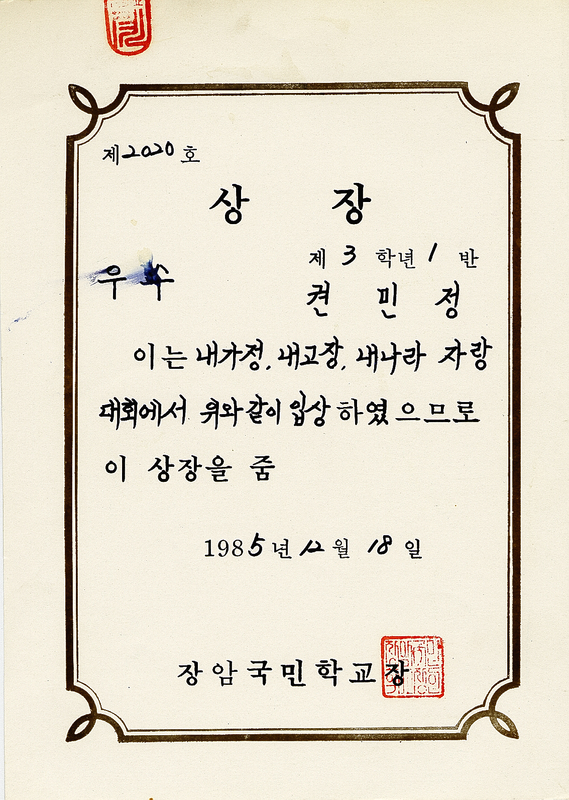 제2020호
상 장
제 3 학년 1 반
우수
권 민 정
이는 내가정, 내고장, 내나라 자랑
대회에서 위와같이 입상하였으므로
이 상장을 줌
1985년 12월 18일
장암국민학교장